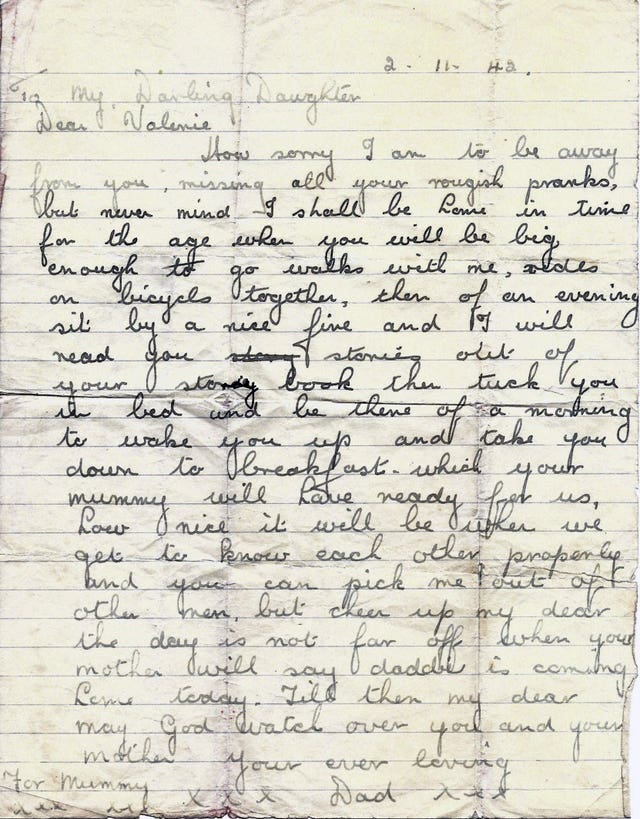 2 - 11 - 42.
To My Darling Daughter
Dear Valerie
How sorry I am to be away
from you, missing all your rougish pranks,
but never mind I shall be home in time
for the age when you will be big
enough to go walks with me, rides
on bicycls together, then of an evening
sit by a nice fire and I will
read you story stories out of
your story book then tuck you
in bed and be there of a morning
to wake you up and take you
down to breakfast - which your
mummy will have ready for us,
how nice it will be when we
get to know each other properly
and you can pick me out of
other men, but cheer up my dear
the day is not far off when your
mother will say daddie is coming
home today. Till then my dear
may God watch over you and your
mother your ever loving
For Mummy
xxx xxx x x x Dad x x x